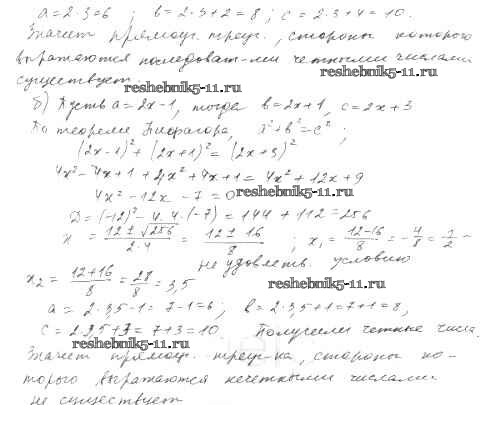 a = 2·3 = 6 ; b = 2·3+2 = 8 ; c = 2·3+4 = 10.
Значит прямоуг. треуг., стороны которого
выражаются последоват-ми четными числами
существует.
reshebnik5-11.ru
reshebnik5-11.ru
б) Пусть a = 2x-1, тогда b = 2x+1, c = 2x+3
По теореме Пифагора, a²+b²=c² ;
(2x-1)² + (2x+1)² = (2x+3)²
4x²-4x+1 + 4x²+4x+1 = 4x²+12x+9
4x² - 12x - 7 = 0
reshebnik5-11.ru
D = (-12)² - 4·4·(-7) = 144 + 112 = 256
x = (12 ± √256)/(2·4) = (12 ± 16)/8 ; x₁ = (12-16)/8 = -4/8 = -1/2 -
не удовлетв. условию
x₂ = (12+16)/8 = 28/8 = 3,5
a = 2·3,5-1 = 7-1 = 6 ; b = 2·3,5+1 = 7+1 = 8,
c = 2·3,5+3 = 7+3 = 10 Получили четные числа.
reshebnik5-11.ru
reshebnik5-11.ru
Значит прямоуг. треуг-ка, стороны ко-
торого выражаются нечетными числами
не существует